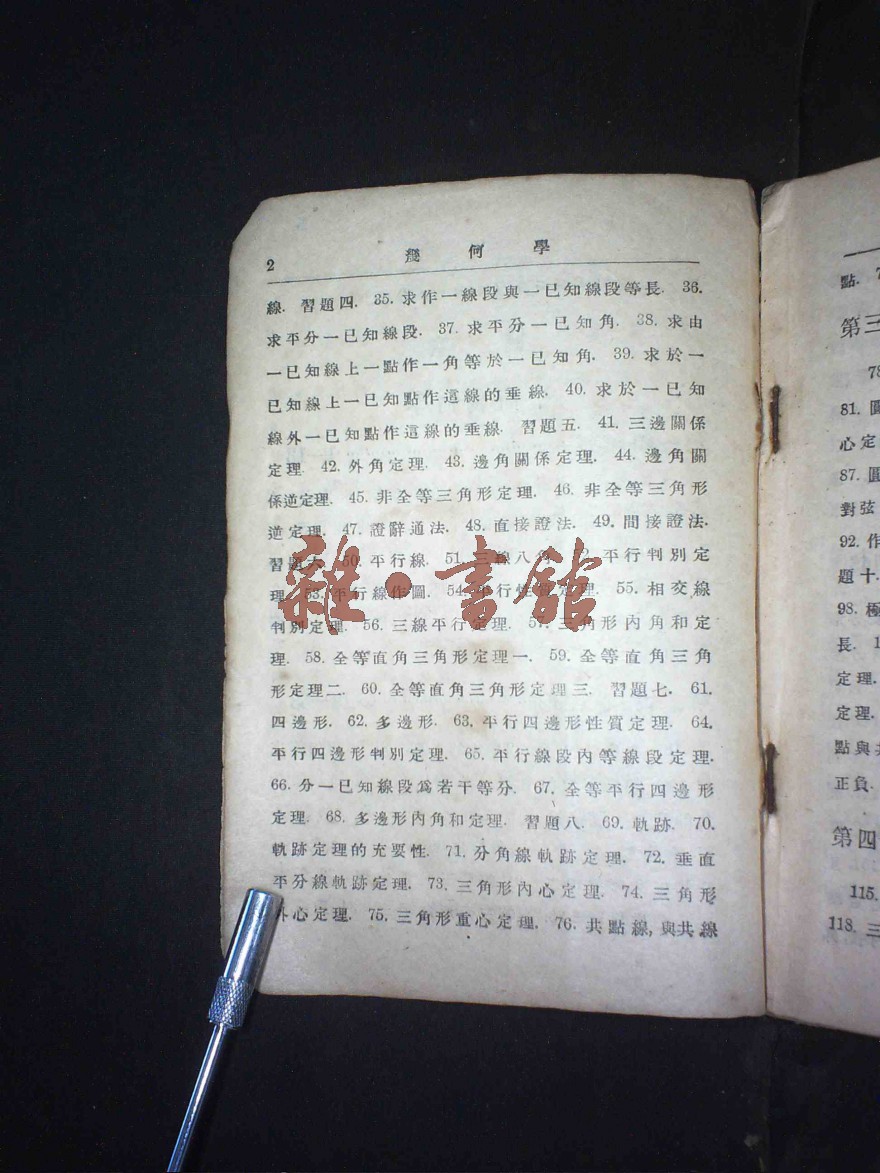 2
幾何學
線. 習題四. 35. 求作一線段與一已知線段等長. 36.
求平分一已知線段. 37. 求平分一已知角. 38. 求由
一已知線上一點作一角等於一已知角. 39. 求於一
已知線上一已知點作這線的垂線. 40. 求於一已知
線外一已知點作這線的垂線. 習題五. 41. 三邊關係
定理. 42. 外角定理. 43. 邊角關係定理. 44. 邊角關
係逆定理. 45. 非全等三角形定理. 46. 非全等三角形
逆定理. 47. 證辭通法. 48. 直接證法. 49. 間接證法.
習題六. 50. 平行線. 51. 三線八角. 平行判別定
理. 53. 平行線作圖. 54. 平行性質定理. 55. 相交線
判別定理. 56. 三線平行定理. 57. 三角形內角和定
理. 58. 全等直角三角形定理一. 59. 全等直角三角
形定理二. 60. 全等直角三角形定理三. 習題七. 61.
四邊形. 62. 多邊形. 63. 平行四邊形性質定理. 64.
平行四邊形判別定理. 65. 平行線段內等線段定理.
66. 分一已知線段爲若干等分. 67. 全等平行四邊形
定理. 68. 多邊形內角和定理. 習題八. 69. 軌跡. 70.
軌跡定理的充要性. 71. 分角線軌跡定理. 72. 垂直
平分線軌跡定理. 73. 三角形內心定理. 74. 三角形
外心定理. 75. 三角形重心定理. 76. 共點線, 與共線
雜·書館
點. 7
第三
78
81. 圓
心定
87. 圓
對弦
92. 作
題十.
98. 極
長. 1
定理.
定理.
點與共
正負.
第四
115.
118. 三